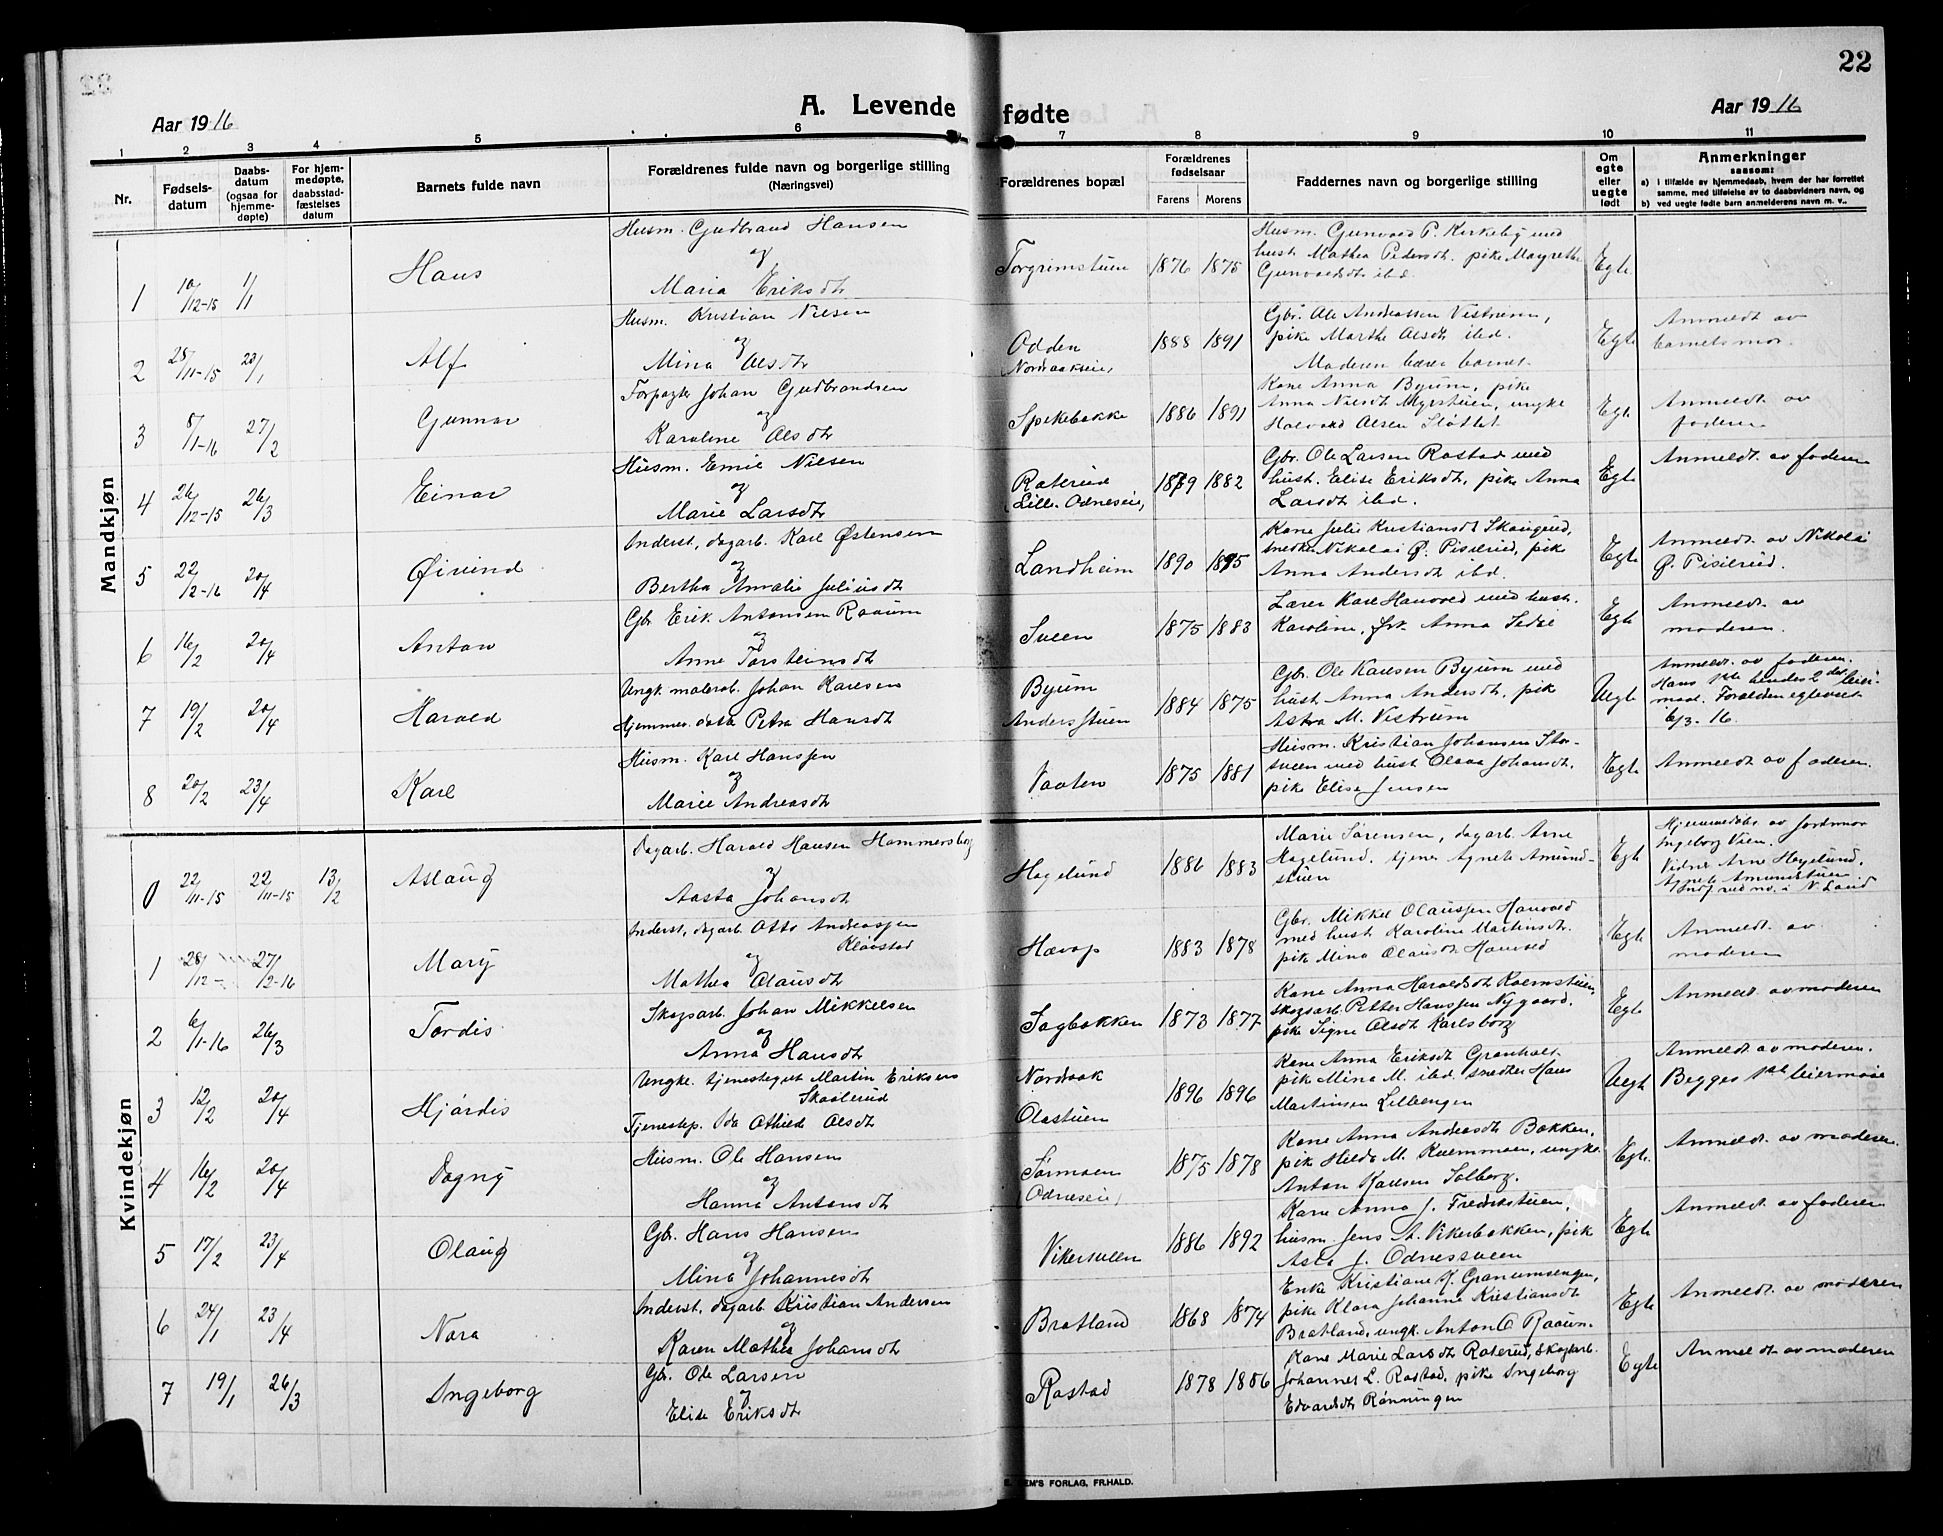 22
A. Levende fødte
Aar 1916
Aar 1916
1 2 3 4 5 6 7 8 9 10 11
Nr.
Fødsels-datum
Daabs-datum (ogsaa for hjemme-døpte)
For hjem-medøpte, daabsstad-fæstelses datum
Barnets fulde navn
Forældrenes fulde navn og borgerlige stilling
(Næringsvei)
Forældrenes bopæl
Forældrenes fødselsaar
Farens Morens
Faddernes navn og borgerlige stilling
Om egte eller uegte født
Anmerkninger
saasom:
a) i tilfælde av hjemmedaab, hvem der har forrettet samme, med tilføielse av to daabsvidners navn, og
b) ved uegte fødte barn anmelderens navn m. v..
Mandkjøn
1 10/12-15 1/1 Hans
Husm. Gudbrand Hansen
og
Maria Eriksdt
Torgrimstuen 1876 1875
Husm. Gunvald P. Kirkeby med
hust. Mathea Pedersdt. pike Magrethe
Gunvaldsdt ibd.
Egte
2 25/11-15 23/1 Alf
Husm. Kristian Nilsen
og
Mina Olsdt
Odden
Nordaakseie, 1888 1891
Gbr. Ole Andreassen Vistrum,
pike Marthe Olsdt ibd.
Moderen bærer barnet.
Egte
Anmeldt av
barnets mor.
3 8/1-16 27/2 Gunnar
Forpagter Johan Gudbrandsen
og
Karoline Olsdt
Spikebakke 1886 1891
Kone Anna Byrum, pike
Anna Nilsdt Myrstuen, ungk.
Halvord Olsen Sløttet
Egte
Anmeldt av
faderen
4 26/12-15 26/3 Einar
Husm. Emil Nilsen
og
Marie Larsdt
Raterud
(Lille. Odneseie) 1879 1882
Gbr. Ole Larsen Rastad med
hust. Elise Eriksdt, pike Anna
Larsdt ibd.
Egte
Anmeldt av faderen
5 22/2-16 20/4 Øivind
Inderst, dagarb. Karl Østensen
og
Bertha Amalie Juliusdt
Landheim 1890 1895
Kone Julie Kristiansdt Skaugerud,
snedker Nikolai Ø. Pisilrud, pike
Anna Andersdt ibd.
Egte
Anmeldt av Nikolai
Ø. Pisilrud.
6 16/2 20/4 Anton
Gbr Erik Antonsen Raaum
og
Anne Torsteinsdt
Sveen 1875 1883
Lærer Karl Hanvold med hust.
Karoline, frk. Anna
Egte
Anmeldt av
moderen.
7 19/2 20/4 Harald
Ungk. malersv. Johan Karlsen
Hjemmev. datter Petra Hansdt
Byrum
Andersstuen 1884 1875
Gbr. Ole Karlsen Byrum med
hust. Anna Andersdt, pike
Astra M. Vistrum
Uegte
Anmeldt av faderen.
Hans 1ste hendes 2det leier-
maal. Forældrene egteviet
6/3-16.
8 20/2 23/4 Karl
Husm. Karl Hanssen
og
Marie Andreasdt
Vaaten 1875 1881
Husm. Kristian Johansen Stor-
sveen med hust Olava Johansdt,
pike Elise Jensen
Egte
Anmeldt av faderen.
Kvindekjøn
0 22/11-15 22/11-15 13/2 Aslaug
Dagarb. Harald Hansen Hammersborg
og
Aasta Johansdt
Hagelund 1886 1883
Marie Sørensen, dagarb. Arne
Hagelund. tjener Agnete Amund-
stuen
Egte
Hjemmedøbt av jordmor
Ingeborg Vien.
Vidner Arne Hagelund,
Agnete Amundstuen
Indf. ved no. i N. Land
1 28/12- 27/2-16 Mary
Inderst, dagarb Otto Andreassen
Klavstad
og
Mathea Olausdt
Havop 1883 1878
Gbr. Mikkel Olaussen Hanvold
med hust Karoline Martinsdt.
pike Mina Olausdt Hanvold
Egte
Anmeldt av
moderen
2 6/1-16 26/3 Tordis
Skogsarb. Johan Mikkelsen
og
Anna Hansdt
Sagbakken 1873 1877
Kone Anna Haraldsdt Kolmstuen,
skogsarb. Petter Hanssen Nygaard.
pike Signe Olsdt Karlsborg
Egte
Anmeldt av moderen
3 12/2 20/4 Hjørdis
Ungk. tjenestegut Martin Eriksen
Skaalerud
Tjenestep. Ida Othilde Olsdt
Nordaak
Olastuen 1896 1896
Kone Anna Eriksdt Granholt.
pike Mina M. ibd. snedker Hans
Martinsen Lillbengen
Uegte
Anmeldt av moderen.
Begges 1ste leiermaal
4 16/2 20/4 Dagny
Husm. Ole Hansen
og
Hanna Antonsdt
Sørmoen
(Odneseie) 1875 1878
Kone Anna Andreasdt Bakken,
pike Hilda M. Kvemmoen, ungk.
Anton Karlsen Solberg.
Egte.
Anmeldt av moderen.
5 17/2 23/4 Olaug
Gbr. Hans Hansen
og
Mina Johannesdt
Vikersveen 1886 1892
Kone Anna J. Fredrikstuen,
husm. Jens A. Vikerbakken, pike
Asta J. Odnessveen
Egte
Anmeldt av faderen
6 24/1 23/4 Nora
Inderst, dagarb. Kristian Andersen
og
Karen Mathea Johansdt
Bratland 1868 1874
Enke Kristiane H. Granumsengen,
pike Klara Johanne Kristiansdt
Bratland, ungk. Anton O Raaum.
Egte
Anmeldt av moderen
7 19/1 26/3 Ingeborg
Gbr. Ole Larsen
og
Elise Eriksdt
Rastad 1878 1886
Kone Marie Larsdt Raterud, skogsarb.
Johannes L. Rastad, pike Ingeborg
Edvardsdt Rønningen
Egte
Anmeldt av moderen
EM'S FORLAG, FR.HALD.